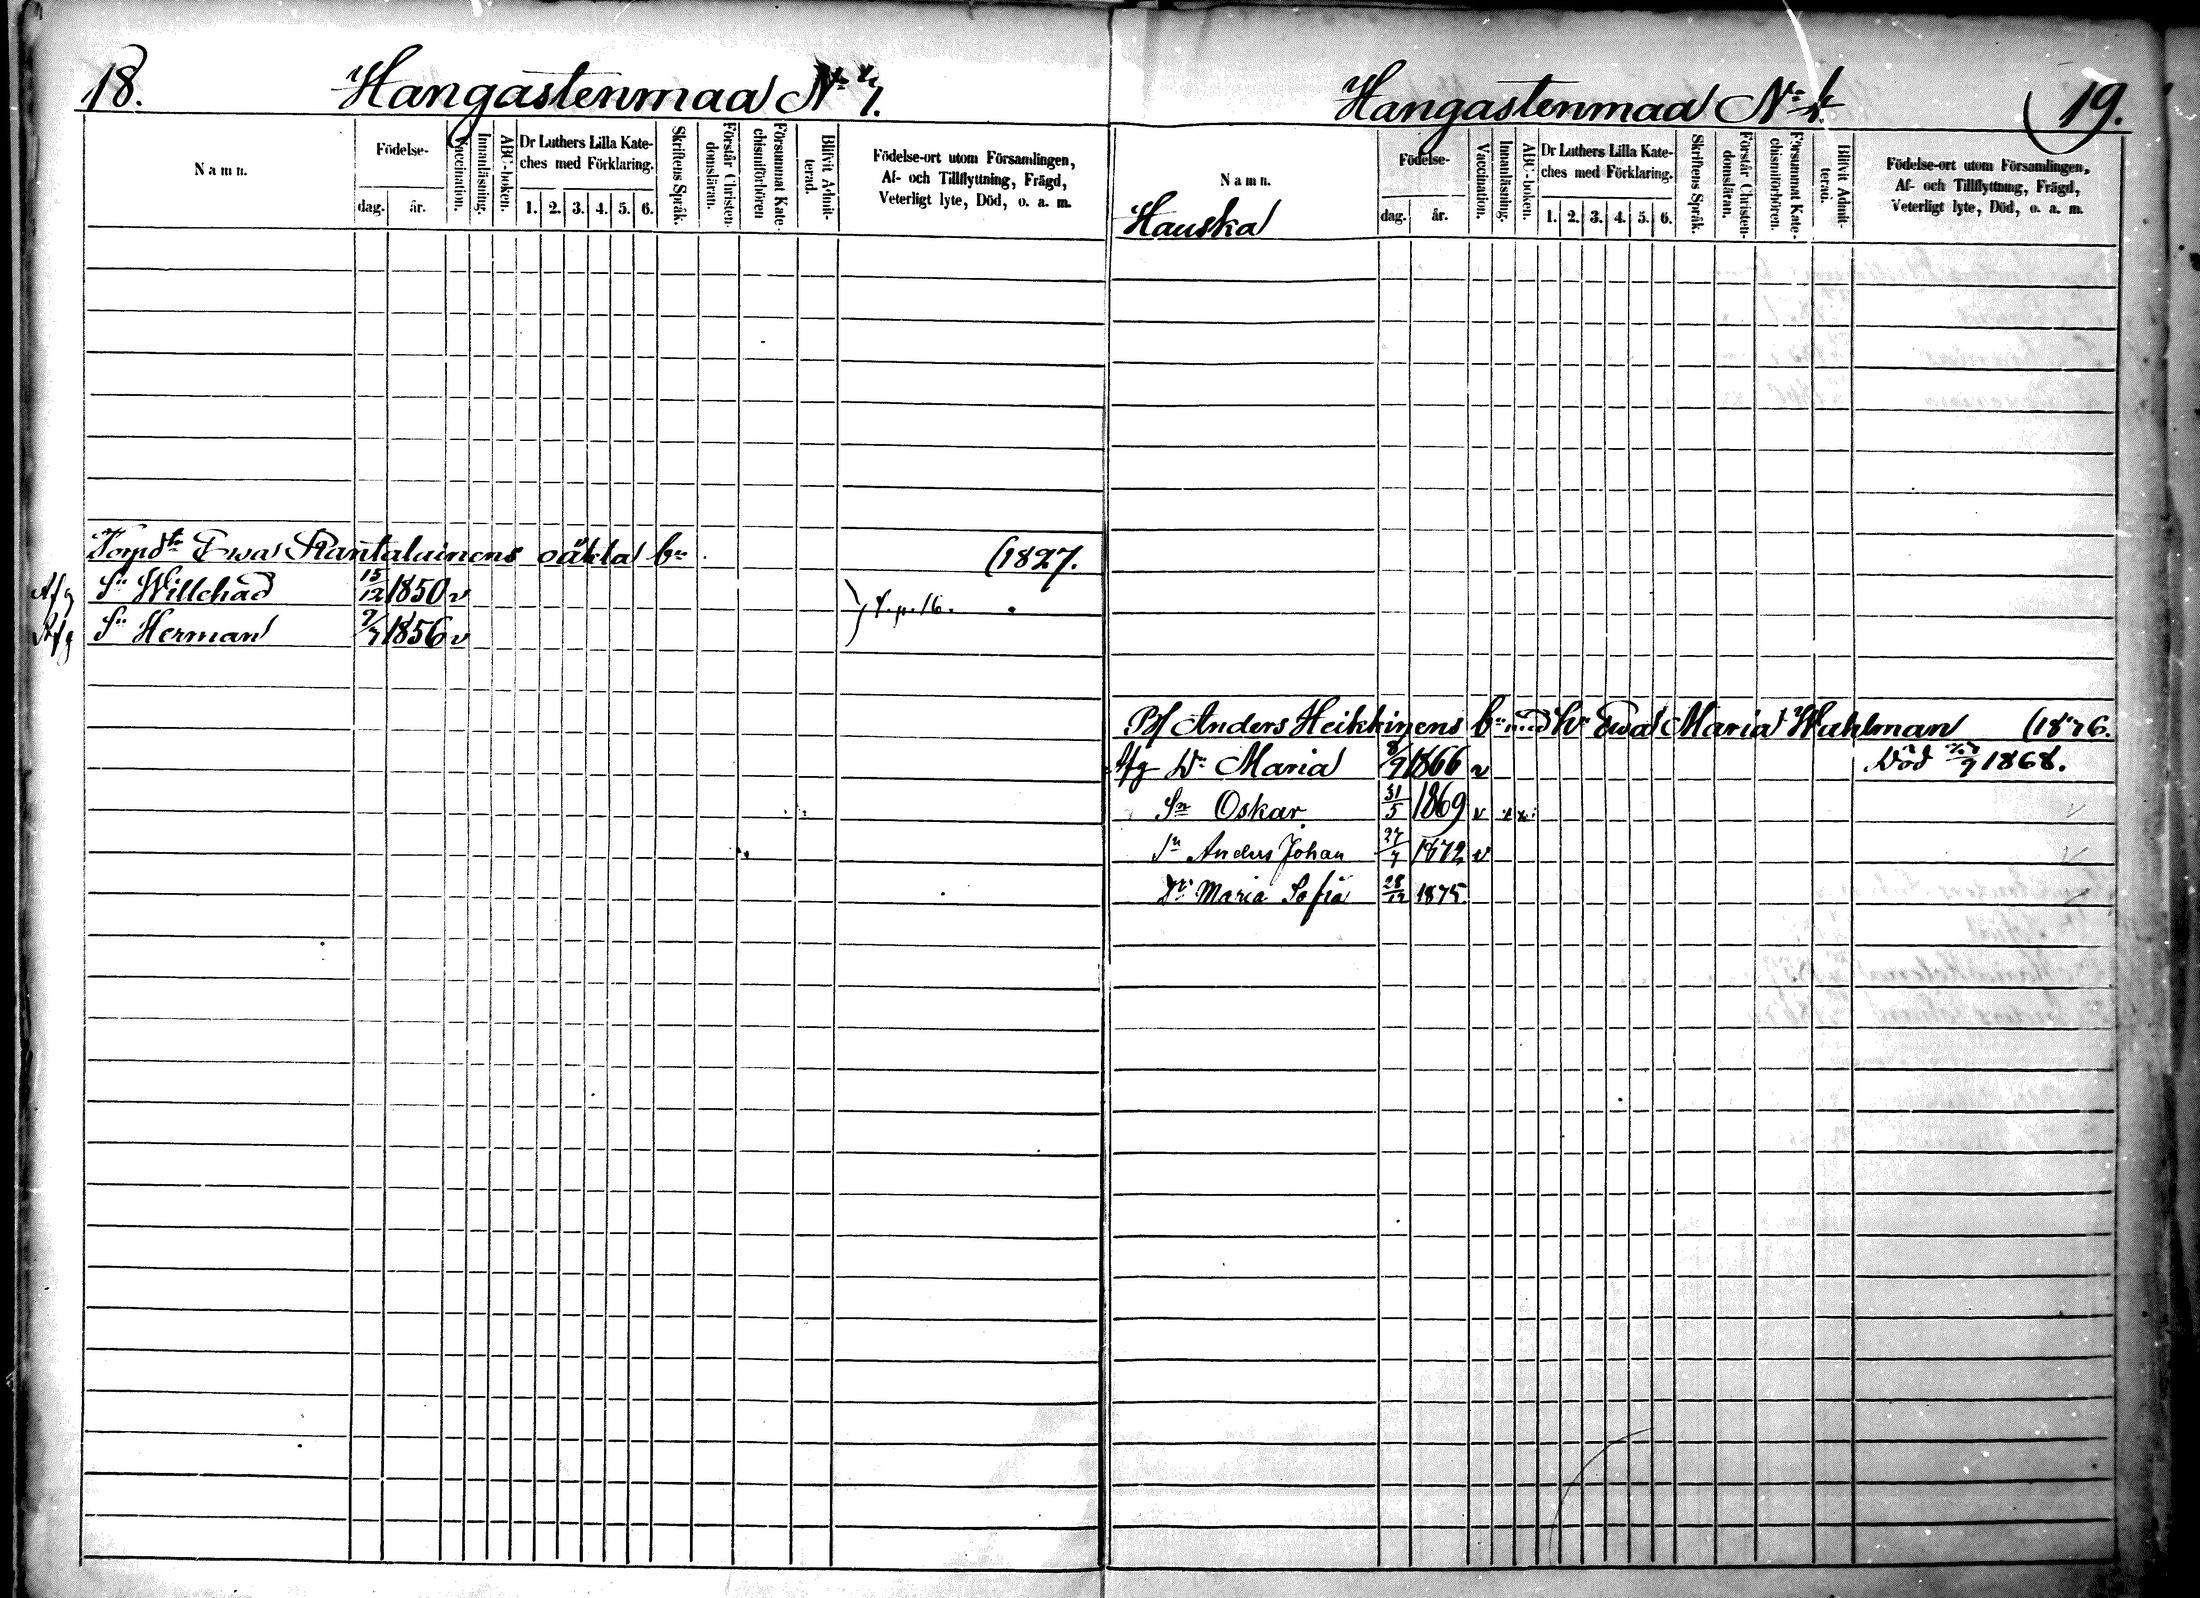 18.
Hangastenmaa No
Namn.
Födelse-
dag. år.
Vaccination.
Innanläsning.
ABC-boken.
Dr Luthers Lilla Kate-
ches med Förklaring.
1. 2. 3. 4. 5. 6.
Skriftens Språk.
Förstår Christen-
domsläran.
Försummat Kate-
chismiförhören
Blifvit Admit-
terad.
Födelse-ort utom Församlingen,
Af- och Tillflyttning, Frägd,
Veterligt lyte, Död, o. a. m.
Ewa Pantaluinens oäkta bn (1827.
Afg Sn Willehad 15/12 1850 v
Afg Sn Herman 9/7 1856 v
f. p. 16.
Hangastenmaa No
19.
Namn.
Hauska
Födelse-
dag. år.
Vaccination.
Innanläsning.
ABC-boken.
Dr Luthers Lilla Kate-
ches med Förklaring.
1. 2. 3. 4. 5. 6.
Skriftens Språk.
Förstår Christen-
domsläran.
Försummat Kate-
chismiförhören.
Blifvit Admit-
terad.
Födelse-ort utom Församlingen,
Af- och Tillflyttning, Frägd,
Veterligt lyte, Död, o. a. m.
Anders Heikkinens bn med h. Ewa Maria Wahlman
Afg Dr Maria 8/9 1866 v Död 1868.
Sn Oskar 31/5 1869 v x x
Sn Anders Johan 27/7 1872 v
Dr Maria Sofia 28/12 1875